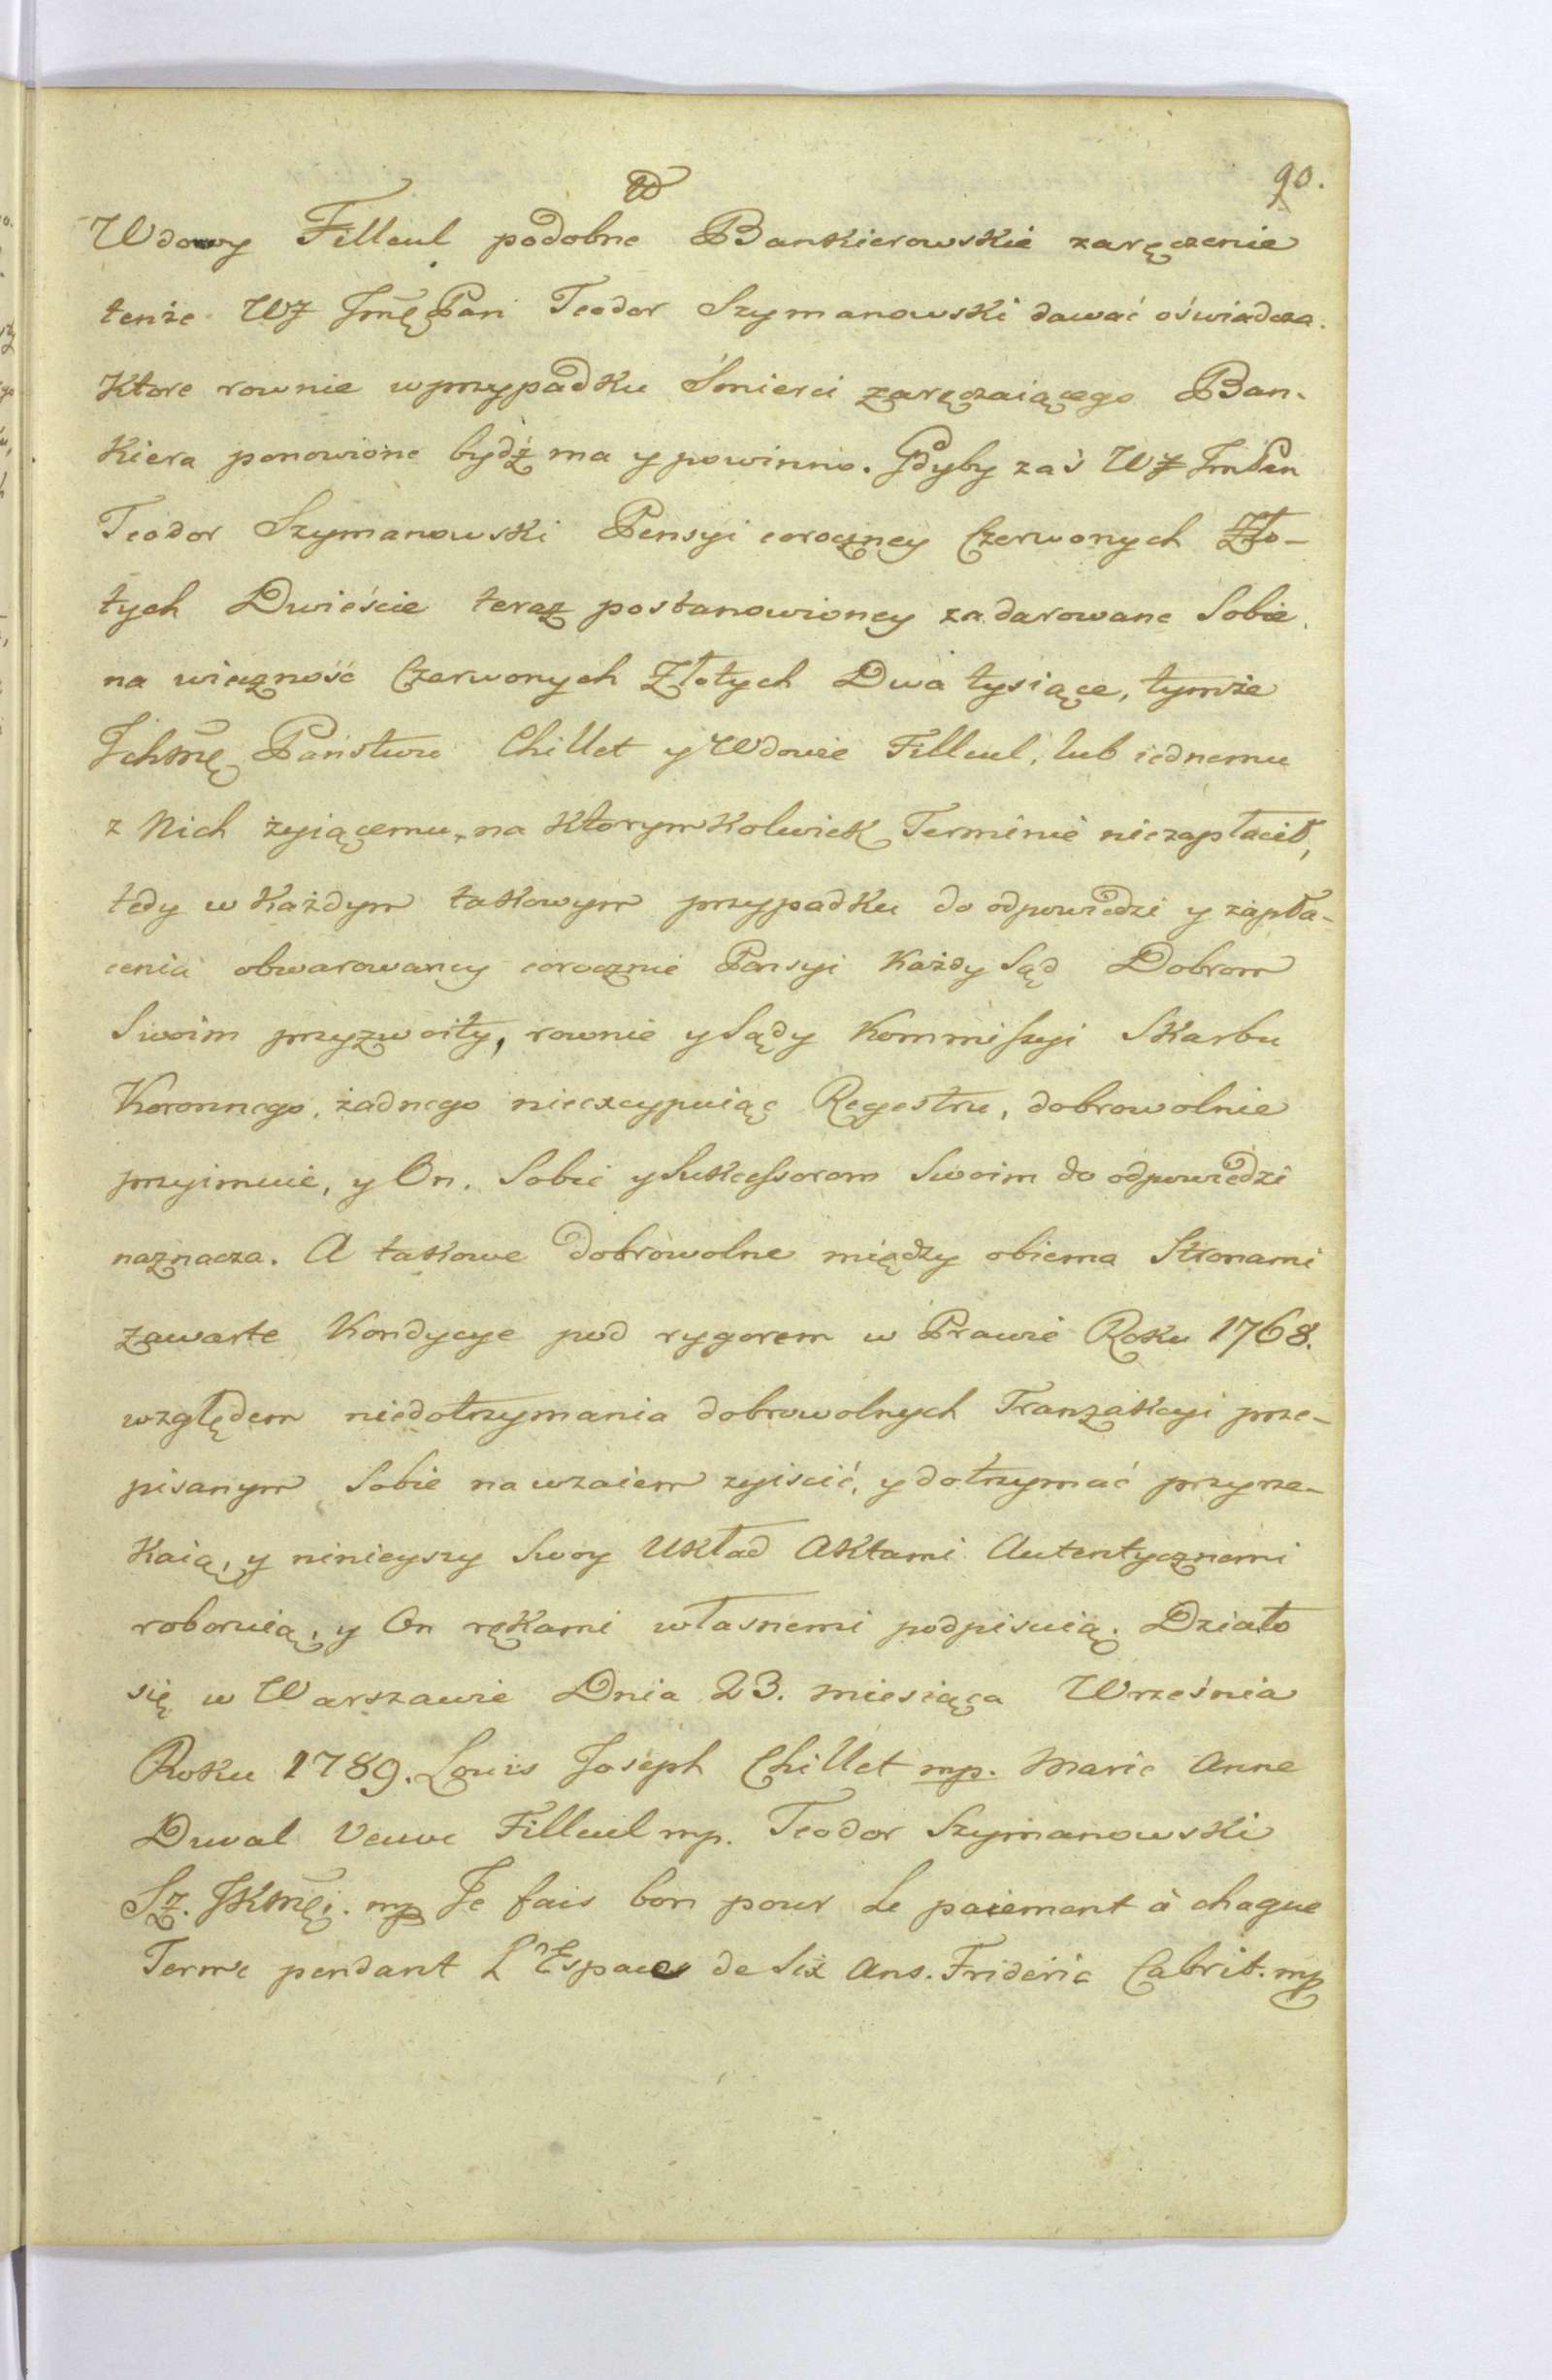 90.
Wdowy Filleul podobne Bankierowskie zaręczenie
tenże WJ Jmę Pan Teodor Szymanowski dawać oświadcza.
Ktore rownie w przypadku Śmierci zaręczaiącego Ban-
kiera ponowione bydź ma y powinno. Gdyby zaś WJ Jm Pan
Teodor Szymanowski Pensyi coroczney Czerwonych Zło-
tych Dwieście teraz postanowioney za darowane Sobie
na wieczność Czerwonych Złotych Dwa tysiące, tymże
Ichmę Państwu Chillet y Wdowie Filleul, lub iednemu
z Nich żyiącemu, na ktorymkolwiek Terminie niezapłacił,
tedy w każdym takowym przypadku do odpowiedzi y zapła-
cenia obwarowaney corocznie Pensyi każdy Sąd Dobrom
Swoim przyzwoity, rownie y Sądy Kommissyi Skarbu
Koronnego, żadnego nieexcypuiąc Regestru, dobrowolnie
przyimuie, y On. Sobie y Sukcessorom Swoim do odpowiedzi
naznacza. A takowe dobrowolne między obiema Stronami
zawarte Kondycye pod rygorem w Prawie Roku 1768.
względem niedotrzymania dobrowolnych Tranzakcyi prze-
pisanym Sobie nawzaiem zyiścić, y dotrzymać przyrze-
kaią, y ninieyszy Swoy Układ Aktami Autentycznemi
roboruią, y On rękami własnemi podpisuią. Działo
się w Warszawie Dnia 23. miesiąca Września
Roku 1789. Louis Joseph Chillet mp. Marie Anne
Duval Veuve Filleul mp. Teodor Szymanowski
Sz. JKmci. mp Je fais bon pour Le paiement à chaque
Terme pendant L'Espace de Six Ans. Frideric Cabrit. mp